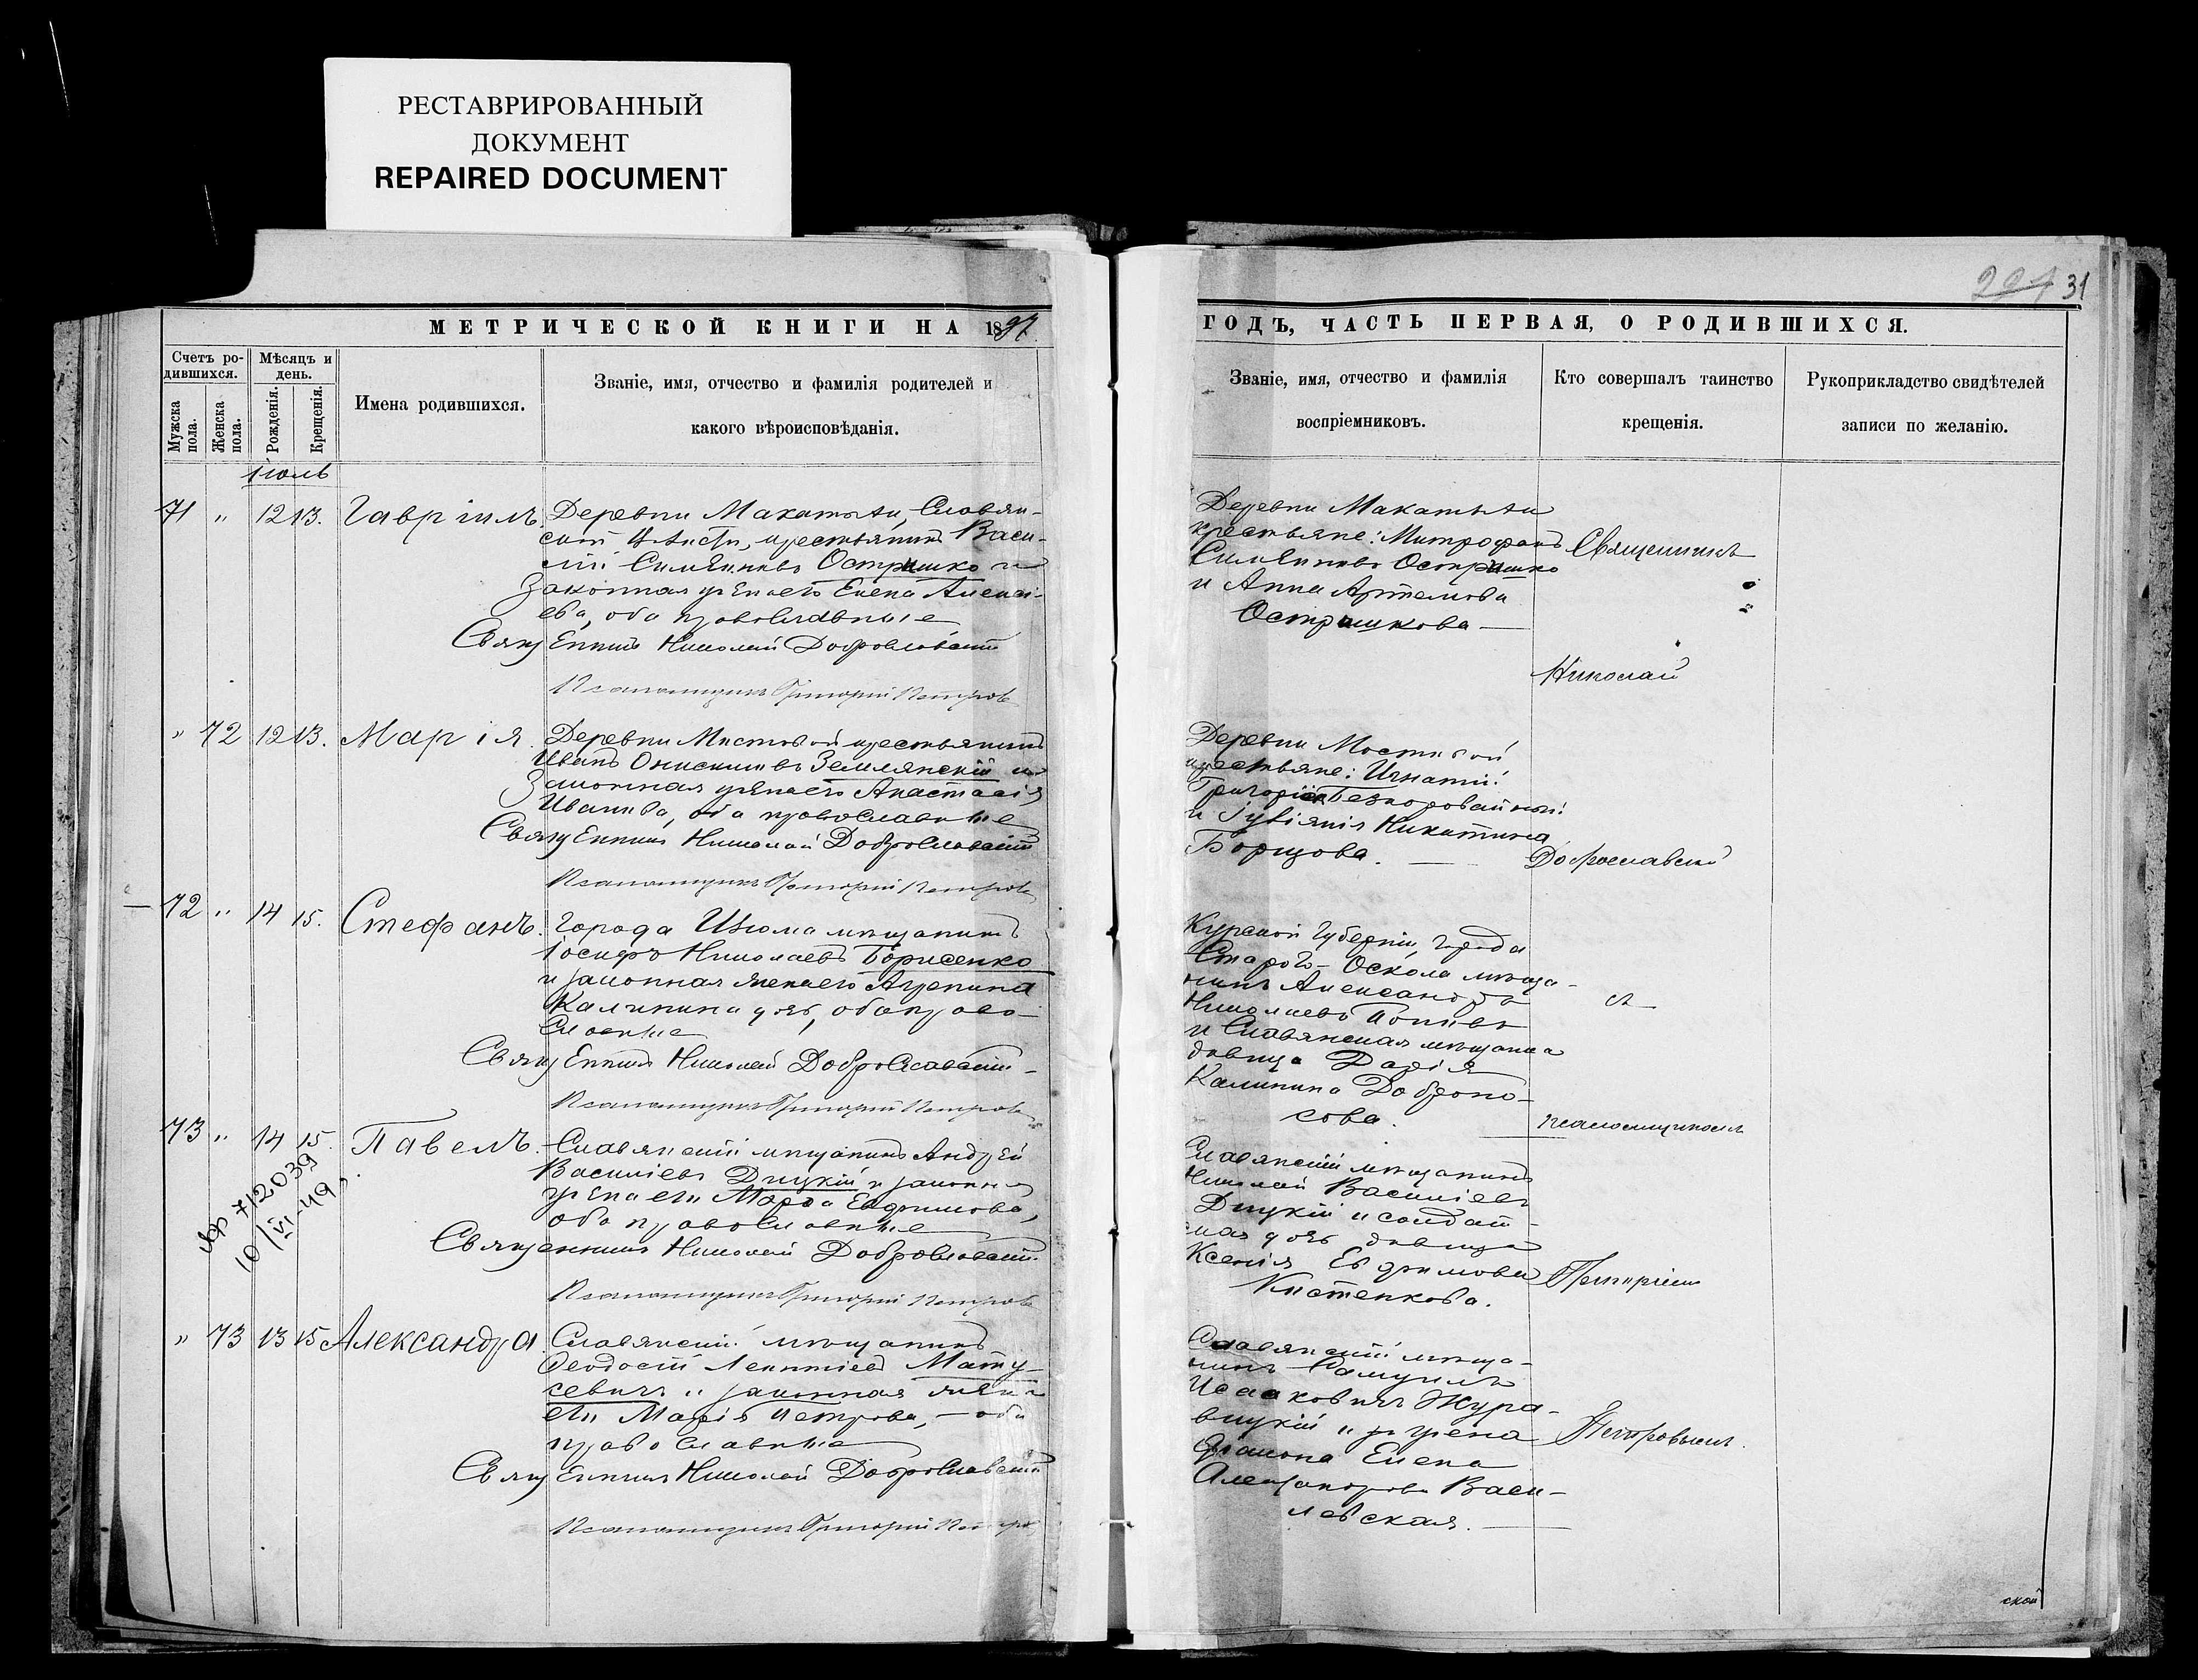 РЕСТАВРИРОВАННЫЙ
ДОКУМЕНТ
REPAIRED DOCUMENT
31
МЕТРИЧЕСКОЙ КНИГИ НА 1897
Счетъ ро-
дившихся.
Мѣсяцъ и
день.
Мужска
пола.
Женска
пола.
Рожденія.
Крещенія.
Имена родившихся.
Званіе, имя, отчество и фамилія родителей и
какого вѣроисповѣданія.
ГОДЪ, ЧАСТЬ ПЕРВАЯ, О РОДИВШИХСЯ.
Званіе, имя, отчество и фамилія
воспріемниковъ.
Кто совершалъ таинство
крещенія.
Рукоприкладство свидѣтелей
записи по желанію.
Іюль
71 " 12 13. Гавріилъ.
Деревни Макатыхи, Славян-
крестьянинъ Васи-
лій Симеоновъ Остришко и
Законная жена его Елена Алексі-
ева, оба православные
Священникъ Николай Доброславскій
Псаломщикъ Григорій Петровъ
Деревни Макатыхи
крестьяне: Митрофанъ
Симеоновъ Остришко
и Анна Артемова
Остришкова —
Священникъ
Николай
" 72 12 13. Марія.
Деревни Мостовой крестьянинъ
Иванъ Онисимовъ Землянскій и
Законная жена его Анастасія
Иванова, оба православные
Священникъ Николай Доброславскій
Псаломщикъ Григорій Петровъ
Деревни Мостовой
крестьяне: Игнатій
Григоріевъ Безкоровайный
и Іуліанія Никитина
Борщова. —
Доброславскій
72 " 14 15. Стефанъ.
Города Изюма мѣщанинъ
Іосифъ Николаевъ Борисенко
и законная жена его Агрепина
Калинина дочь, оба право-
славные
Священникъ Николай Доброславскій
Псаломщикъ Григорій Петровъ
Курской Губерніи, города
Старого-Оскола мѣща-
нинъ Александръ
Николаевъ Поповъ
и Славянская мѣщанка
дѣвица Дарія
Калинина Доброно-
сова.
съ
псаломщикомъ
73 " 14 15. Павелъ.
Славянскій мѣщанинъ Андрей
Василіевъ Дицкій и законная
жена его Марѳа Евфимова,
оба православные
Священникъ Николай Доброславскій
Псаломщикъ Григорій Петровъ
712039
10/VI-49
Славянскій мѣщанинъ
Николай Василіевъ
Дицкій и солдат-
ская дочь дѣвица
Ксенія Евфимова
Кистенкова.
Григоріемъ
" 73 13 15 Александра.
Славянскій мѣщанинъ
Ѳеодосій Леонтіевъ Мату-
севичъ и законная жена
его Марія Петрова, — оба
православные
Священникъ Николай Доброславскій
Псаломщикъ Григорій Петровъ
Славянскій мѣща-
нинъ Самуилъ
Исааковичъ Жура-
вицкій и жена
Елена
Александрова Васи-
левская. —
Петровымъ.
ской